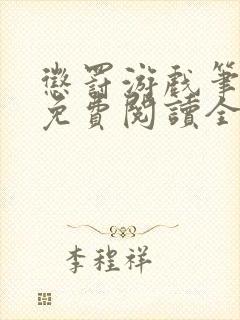 懲罰游戏筆
免費閱讀全
李程祥